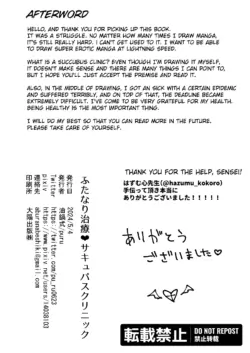 AFTERWORD
HELLO, AND THANK YOU FOR PICKING UP THIS BOOK.
IT WAS A STRUGGLE. NO MATTER HOW MANY TIMES I DRAW MANGA,
IT'S STILL REALLY HARD. I CAN'T GET USED TO IT. I WANT TO BE ABLE
TO DRAW SUPER EROTIC MANGA AT LIGHTNING SPEED.
WHAT IS A SUCCUBUS CLINIC? EVEN THOUGH I'M DRAWING IT MYSELF,
IT DOESN'T MAKE SENSE AND THERE ARE MANY THINGS I CAN POINT TO,
BUT I HOPE YOU'LL JUST ACCEPT THE PREMISE AND READ IT.
ALSO, IN THE MIDDLE OF DRAWING, I GOT AN SICK WITH A CERTAIN EPIDEMIC
AND SUFFERED TERRIBLY, AND ON TOP OF THAT, THE DEADLINE BECAME
EXTREMELY DIFFICULT. I'VE COME TO BE VERY GRATEFUL FOR MY HEALTH.
BEING HEALTHY IS THE MOST IMPORTANT THING.
I WILL DO MY BEST SO THAT YOU CAN READ MORE IN THE FUTURE.
PLEASE TAKE CARE OF YOURSELF.
THANK YOU FOR THE HELP, SENSEI!
はずむ心先生(@hazumu_kokoro)
手伝って頂き本当に
ありがとうございました!!!!!
ありがとう
ございました♡
ふたなり治療♥サキュバスクリニック
発行日 2024/5/4
発行者 油鍋式/puru
Twitter https://twitter.com/pu_ru0623
pixiv https://www.pixiv.net/users/14038103
連絡先 aburanabeshiki@gmail.com
印刷所 大陽出版㈱
転載禁止
DO NOT REPOST